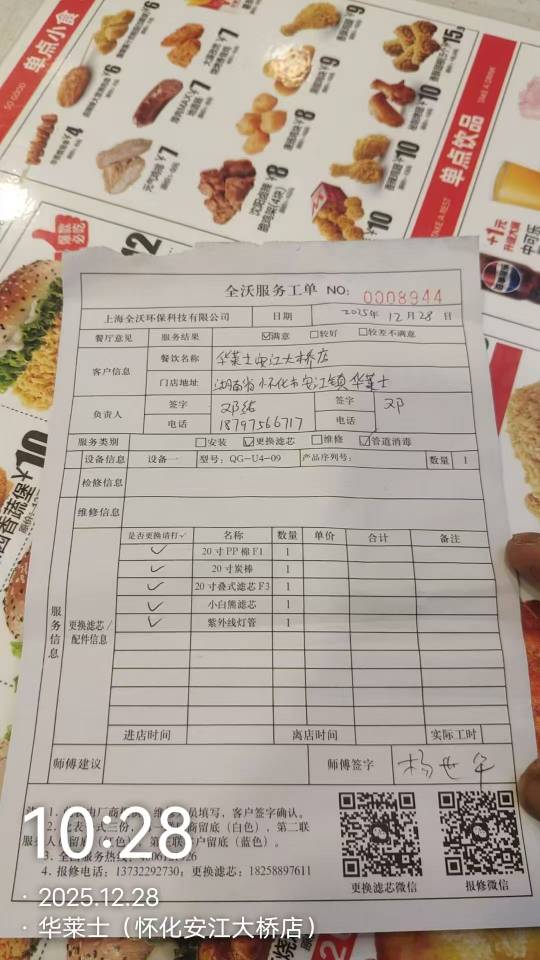 单点小食
SO GOOD
单点饮品
TAKE A REST
TAKE A DRINK
¥6
¥7
¥9
¥15
¥4
¥7
¥8
¥9
¥10
¥8
¥10
¥10
+1元
中可乐
12
全沃服务工单 NO: 0008944
上海全沃环保科技有限公司 日期 2025年 12月 28日
餐厅意见 服务结果 ☑满意 □较好 □较差不满意
客户信息 餐饮名称 华莱士安江大桥店
门店地址 湖南省怀化市安江镇华莱士
负责人 签字 签字 邓
电话 18797566717 电话
服务类别 □安装 ☑更换滤芯 □维修 ☑管道消毒
设备信息 设备一 型号: QG-U4-09 产品序列号: 数量 1
检修信息
维修信息
服务信息
更换滤芯/配件信息
是否更换请打✓ 名称 数量 单价 合计 备注
✓ 20寸PP棉F1 1
✓ 20寸炭棒 1
✓ 20寸叠式滤芯F3 1
✓ 小白熊滤芯 1
✓ 紫外线灯管 1
进店时间 离店时间 实际工时
师傅建议 师傅签字 杨世华
员填写，客户签字确认。
留底（白色），第二联
户留底（蓝色）。
4. 报修电话: 13732292730; 更换滤芯: 18258897611
更换滤芯微信 报修微信
10:28
· 2025.12.28
· 华莱士（怀化安江大桥店）